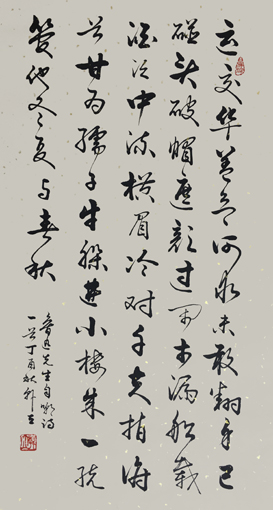 运交华盖欲何求未敢翻身已
碰头破帽遮颜过闹市漏船载
酒泛中流横眉冷对千夫指俯
首甘为孺子牛躲进小楼成一统
管他冬夏与春秋
鲁迅先生自嘲诗
一首丁酉秋